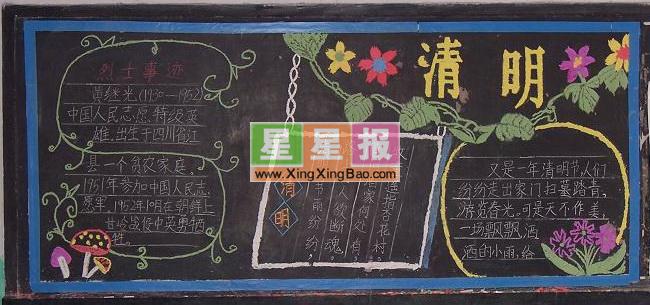 清明
烈士事迹
黄继光(1930—1952)
中国人民志愿特级英
雄,出生于四川省江
县一个贫农家庭。
1951年参加中国人民志
愿军,1952年10月在朝鲜上
甘岭战役中英勇牺
牲。
星星报
www.XingXingBao.com
清明
雨纷纷,
欲断魂。
家何处有,
遥指杏花村。
又是一年清明节,人们
纷纷走出家门扫墓踏青,
游览春光。可是天不作美,
一场飘飘洒
洒的小雨,给